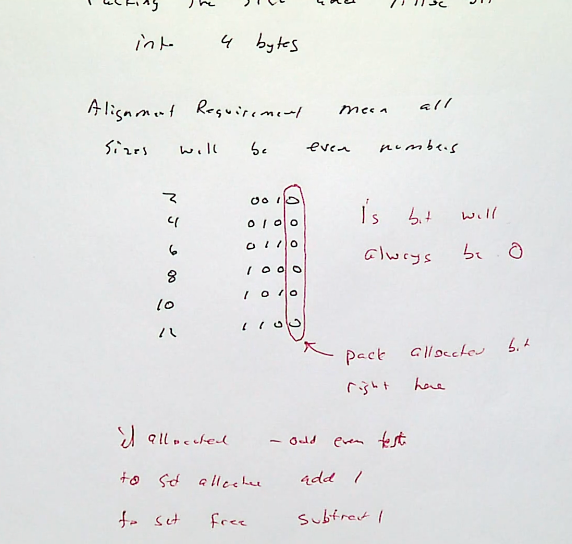 Packing the size and
into 4 bytes
Alignment Requirement mean all
sizes will be even numbers
2 0010
4 0100
6 0110
8 1000
10 1010
12 1100
1's bit will
always be 0
pack allocated bit
right here
allocated - odd even test
to set allocate add 1
to set free subtract 1